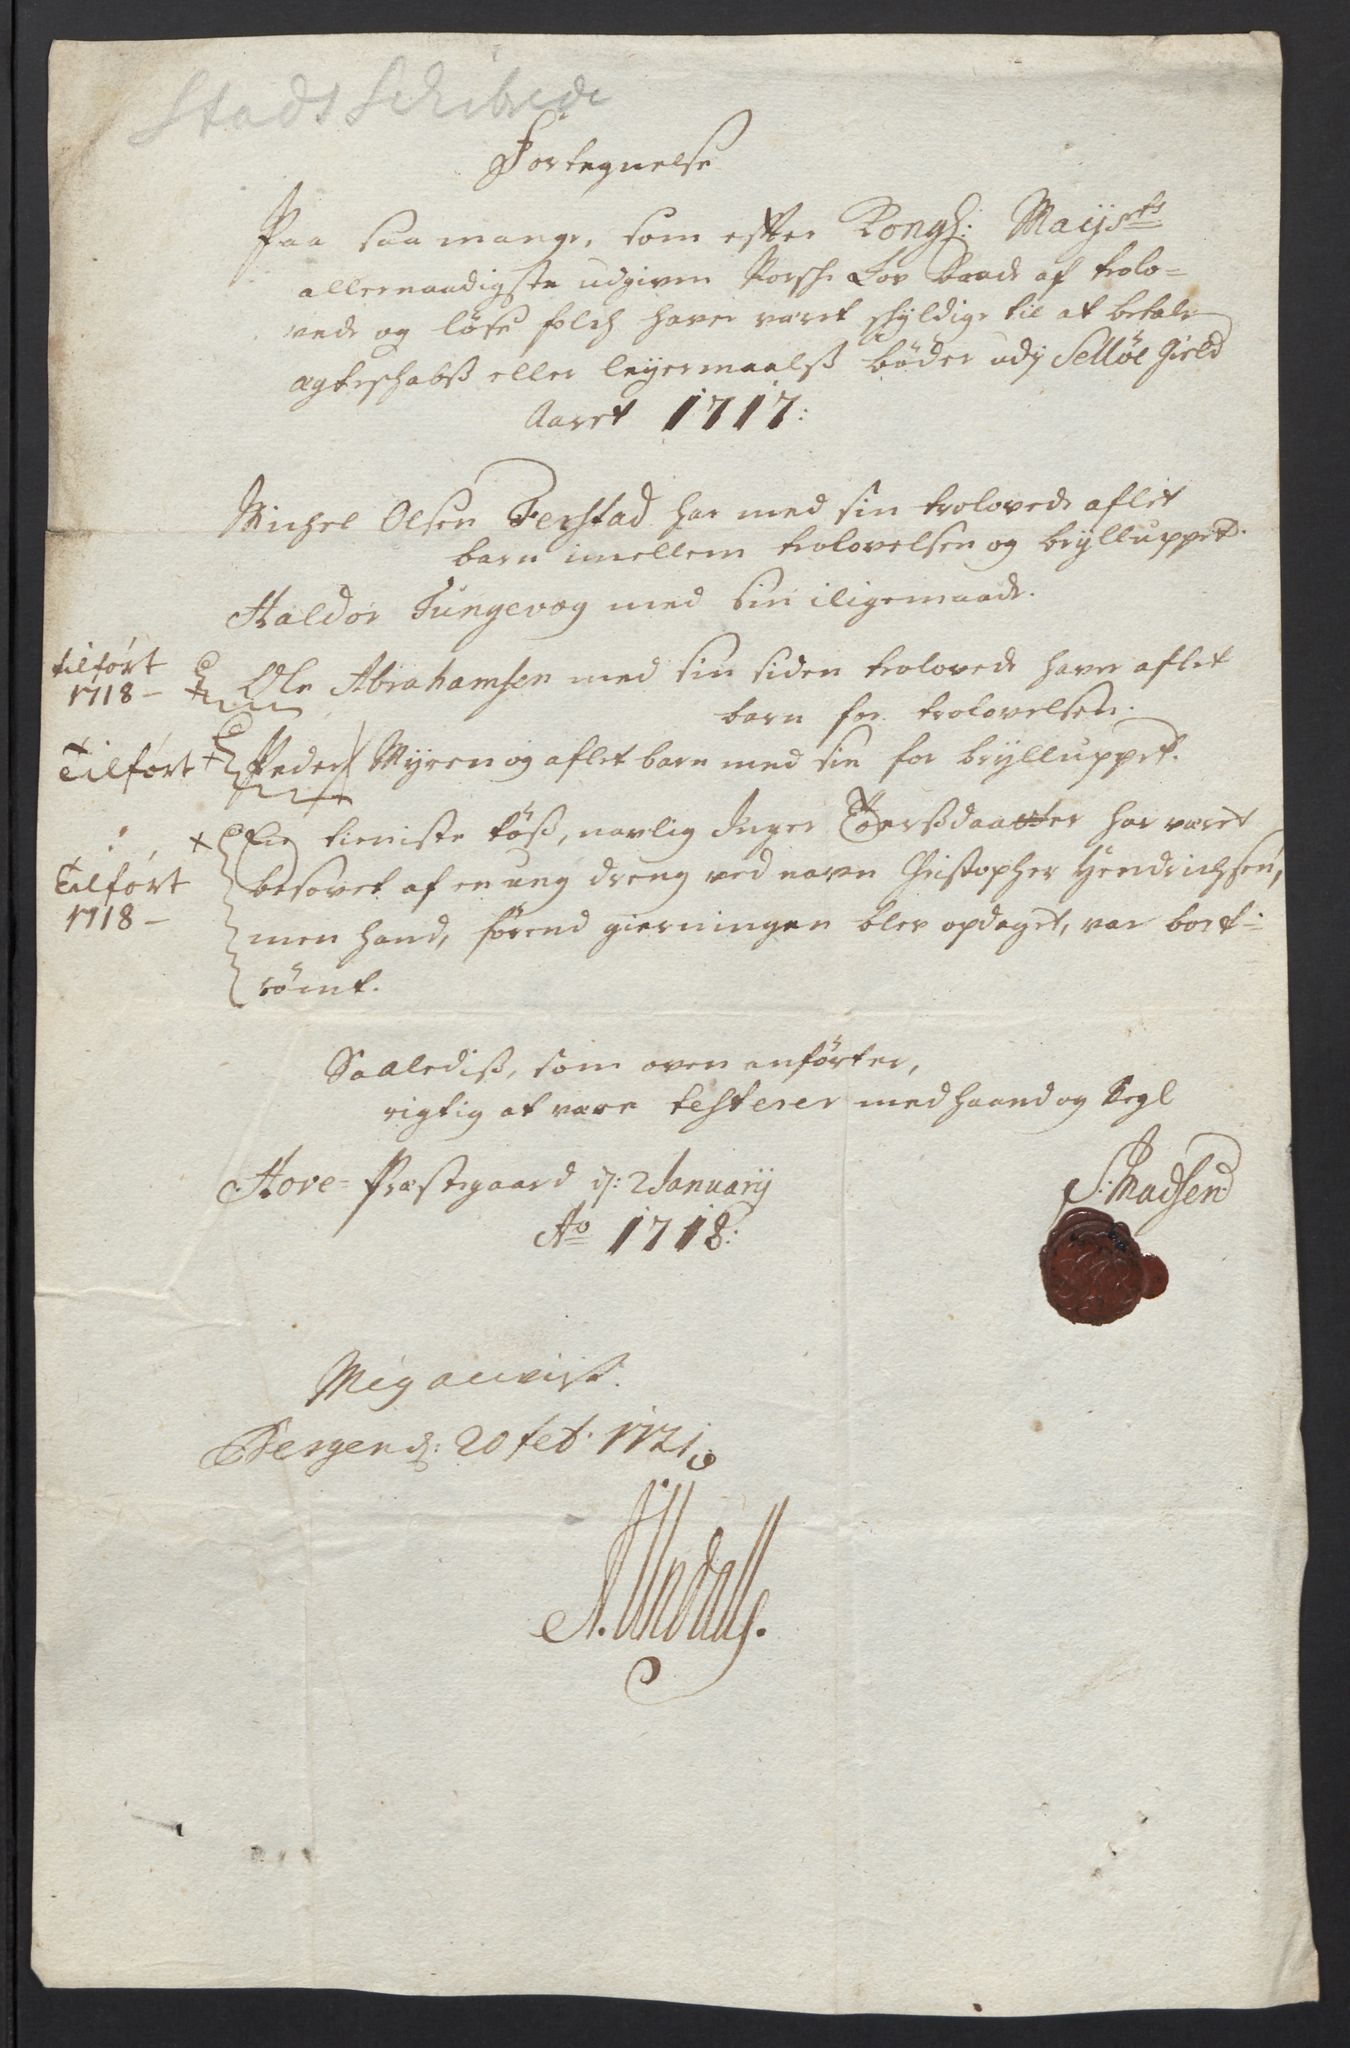 Stads Schibrede
Fortegnelse
Paa saa mange, som efter Kongl: Maÿsts
allernaadigste udgivne Norsche Lov baade af trolo=
vede og löse folch haver været schÿldige til at betale
egteschabs eller leÿermaalß böder udÿ Selløe Gield
Aaret 1717:
Michel Olsen Ferstad har med sin trolovede aflet
barn imellem trolovelsen og brÿlluppet.
Haldor Tungevog med sin iligemaade.
tilført
1718 –
Ole Abrahamsen med sin siden trolovede haver aflet
barn før trolovelsen.
Tilført
Peder Myren og aflet barn med sin før brÿlluppet.
En tieniste töß, navlig Inger daatter har været
Tilført
1718 –
besovet af en ung dreng ved navn Christopher Hendrichsen,
men hand, förend gierningen blev opdaget, var bort=
römt.
Saalediß, som oven anförter,
rigtig at være testerer med haand og Segl
Hove= Præstegaard d: 2 Januarÿ
Ao 1718:
S: Madsen
Mig anviist.
Bergen d: 20 feb: 1721
A. Undall.